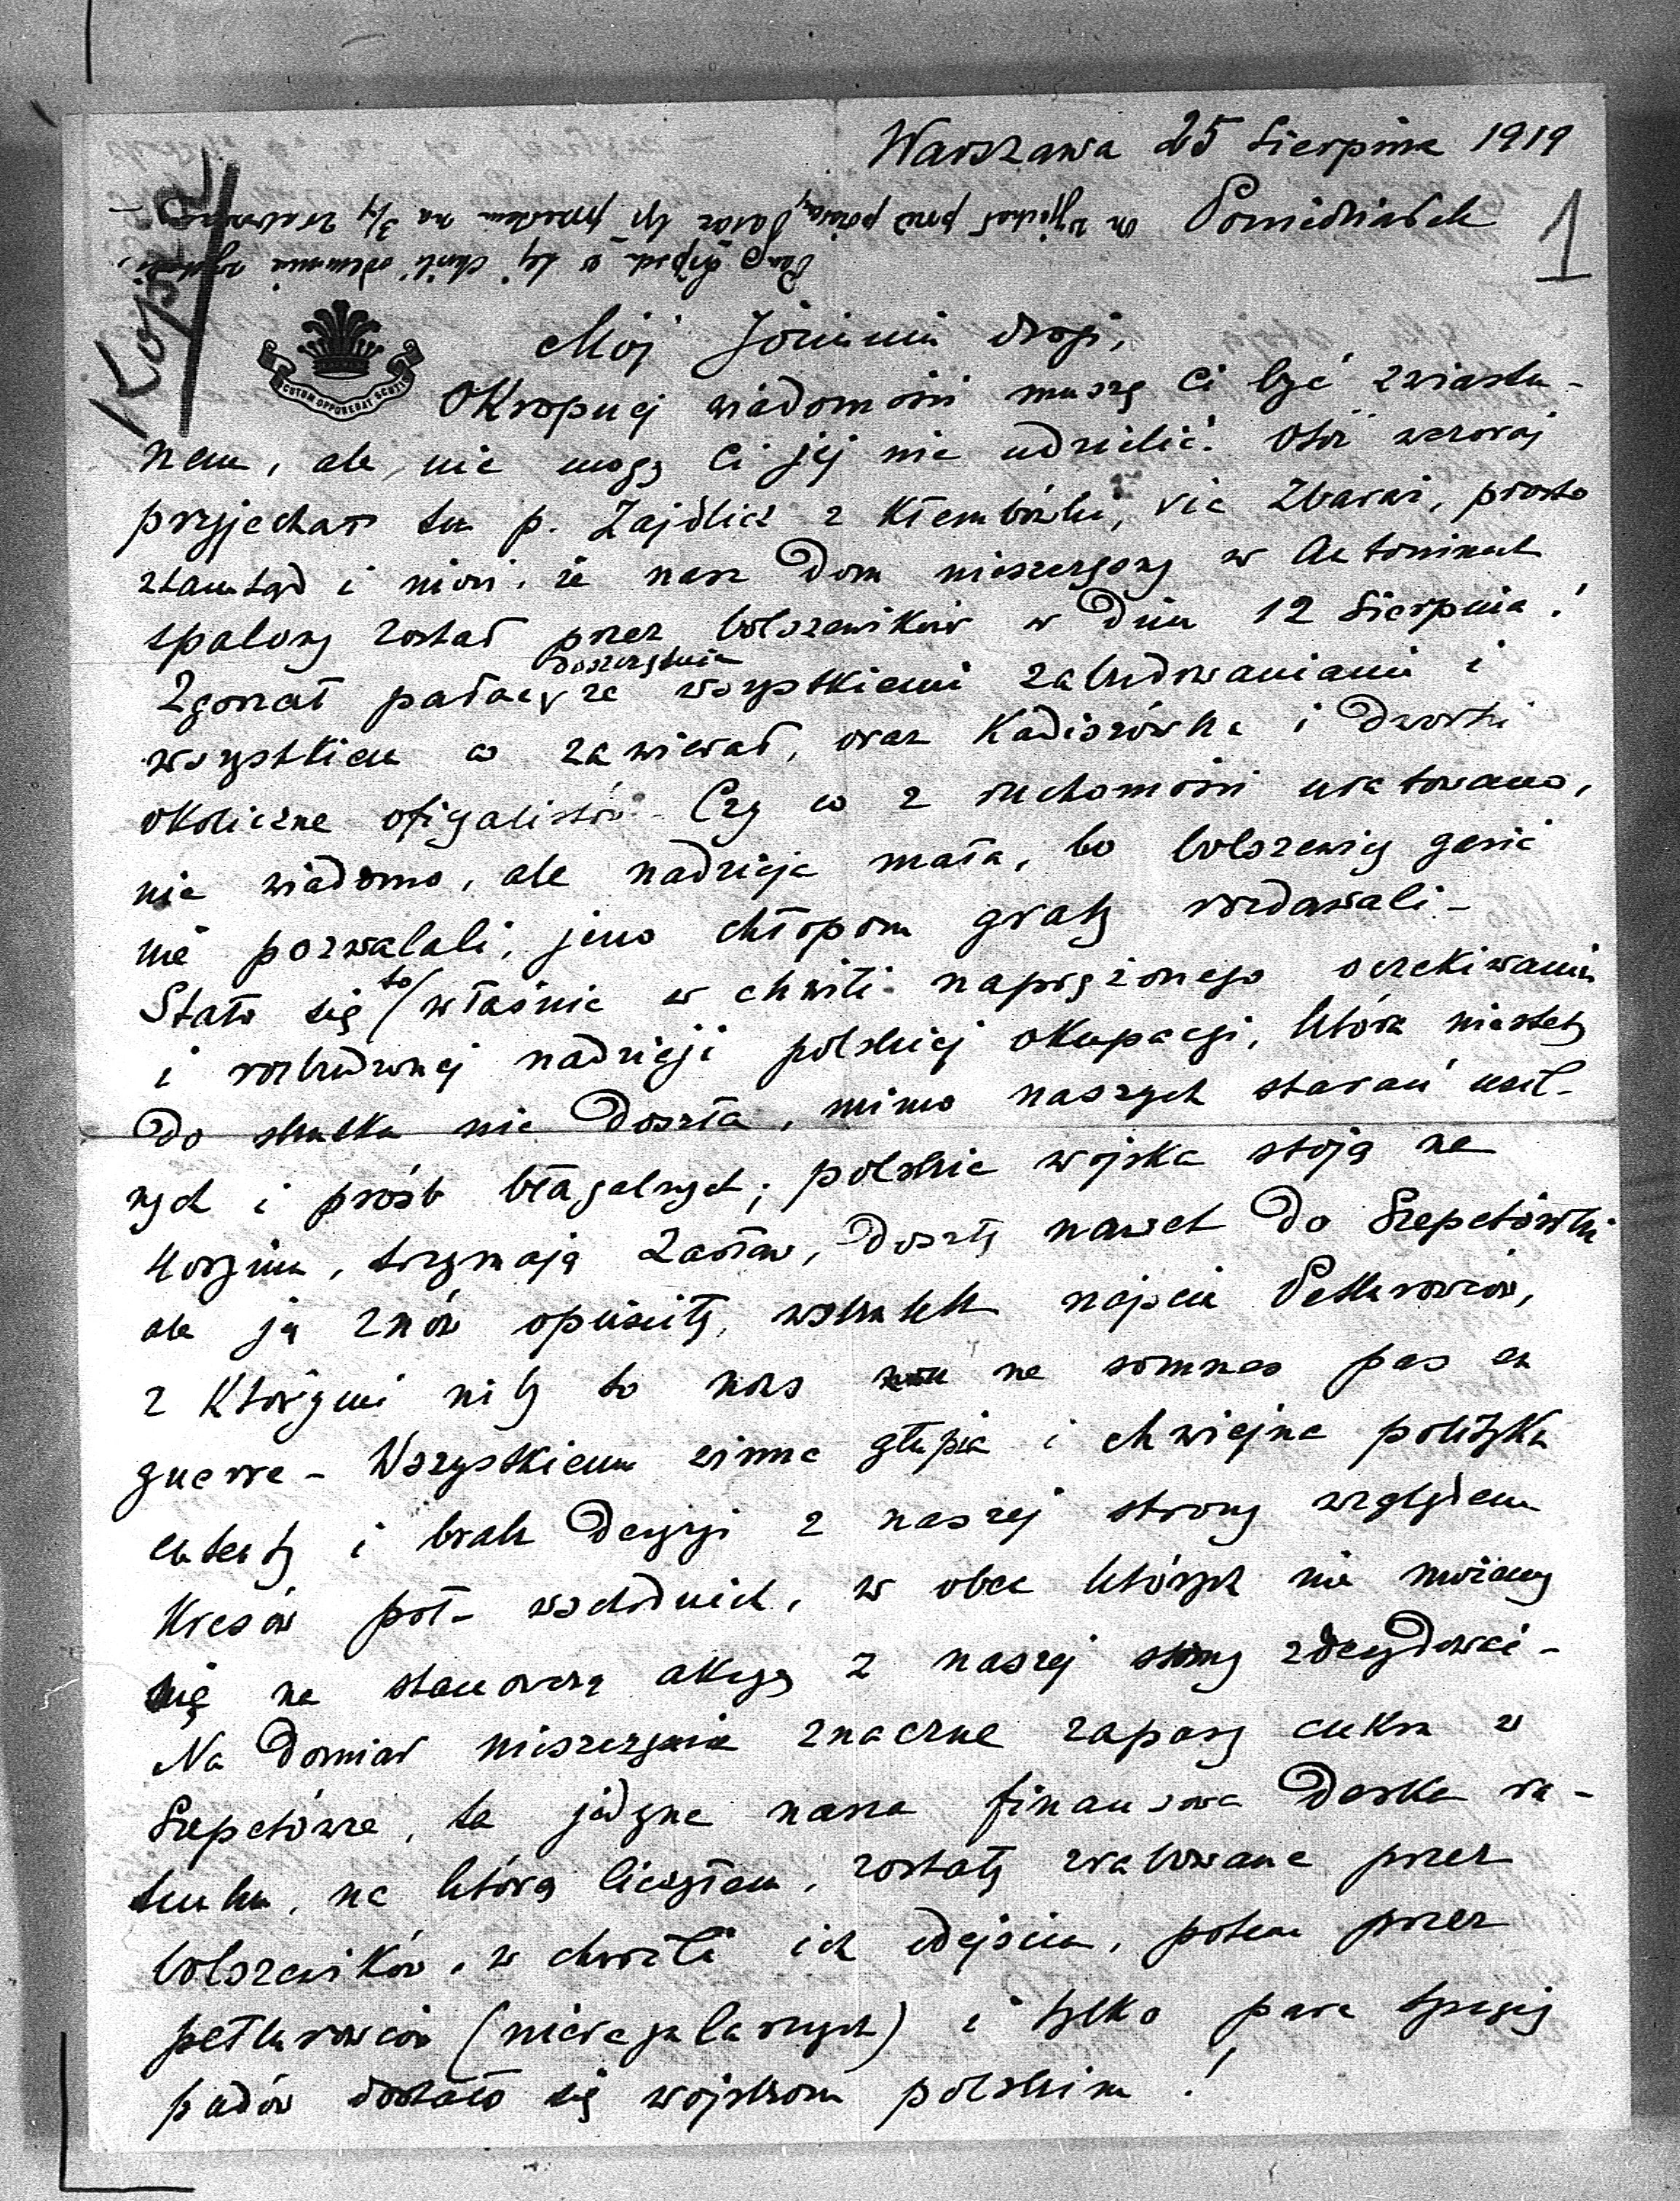 Warszawa 25 Sierpnia 1919
Poniedziałek
1
Kopia
SCUTUM OPPONEBAT SCUTIS
Mój drogi,
Okropnej wiadomości muszę Ci być zwiastu-
nem, ale nie mogę Ci jej nie udzielić. Otóż wczoraj
przyjechał tu p. Zajdlicz z Kłembówki, via Zbaraż, prosto
ztamtąd i mówi, że nasz Dom nieszczęsny w Antoninach
spalony został przez bolszewików w Dniu 12 Sierpnia!
Zgorzał pałac doszczętnie ze wszystkiemi zabudowaniami i
wszystkiem co zawierał, oraz Kadiszówka i Dworki
okoliczne oficyalistów - Czy co z ruchomości uratowano,
nie wiadomo, ale nadzieja mała, bo bolszewicy gasić
nie pozwalali, jeno chłopom graty rozdawali -
Stało się to właśnie w chwili naprężonego oczekiwania
i rozbudzonej nadzieji polskiej okupacji, która niestety
Do skutku nie Doszła, mimo naszych starań usil-
nych i próśb błagalnych; polskie wojska stoją na
Horyniu, trzymają Zasław, Doszły nawet Do Szepetówki
ale ją znów opuściły, wskutek najścia Petlurowców,
z Którymi niby to nous ne sommes pas en
guerre - Wszystkiemu winna głupia i chwiejna polityka
ententy i brak Decyzyi z naszej strony względem
Kresów poł- wschodnich, w obec których nie możemy
się na stanowczą akcyę z naszej strony zdecydować -
Na Domiar nieszczęścia znaczne zapasy cukru w
Szepetówce, ta jedyna nasza finansowa Deska ra-
tunku, na którą liczyłem, zostały zrabowane przez
bolszewików, w chwili ich odejścia, potem przez
petlurowców (nieregularnych) i tylko parę tysięcy
pudów dostało się wojskom polskim!